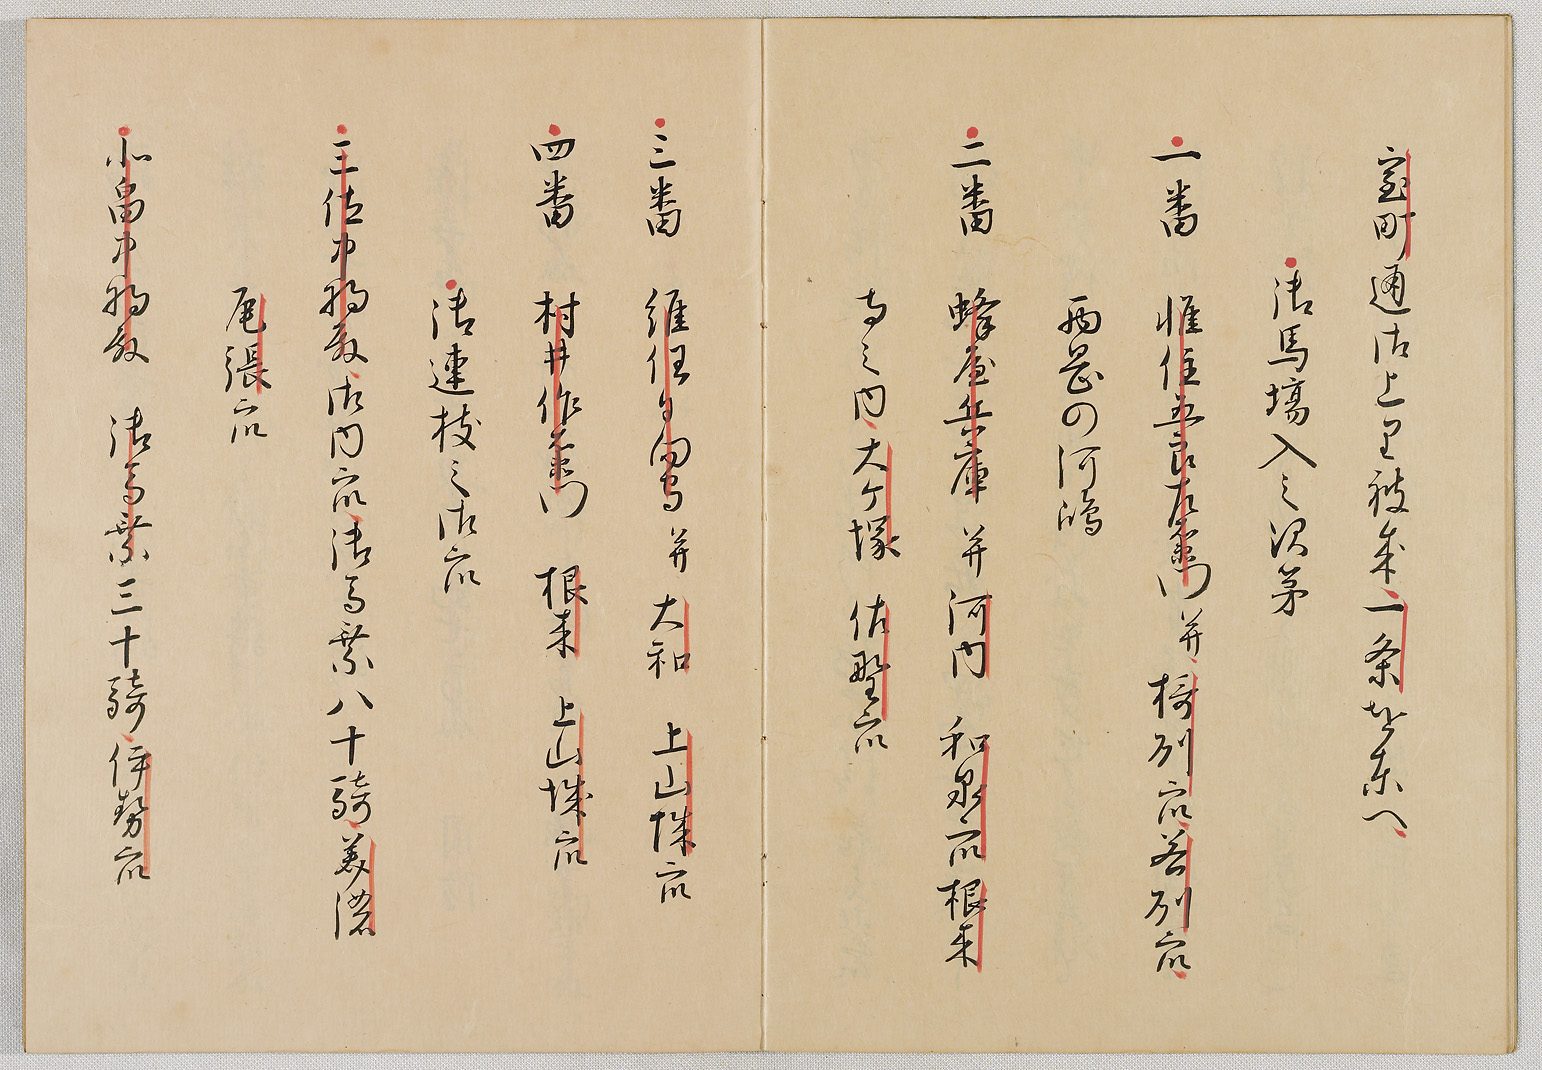 室町通御上り被成一条を東へ
御馬場入之次第
一番 惟住五良左衛門 并 摂州衆若州衆
西岡の河嶋
二番 蜂屋兵庫 并 河内 和泉衆根来
寺之内大ケ塚 佐野衆
三番 維任日向守 并 大和 上山城衆
四番 村井作右衛門 根来 上山城衆
御連枝之御衆
三位中将殿御内衆御馬乗八十騎美濃
尾張衆
北畠中将殿 御馬乗三十騎伊勢衆